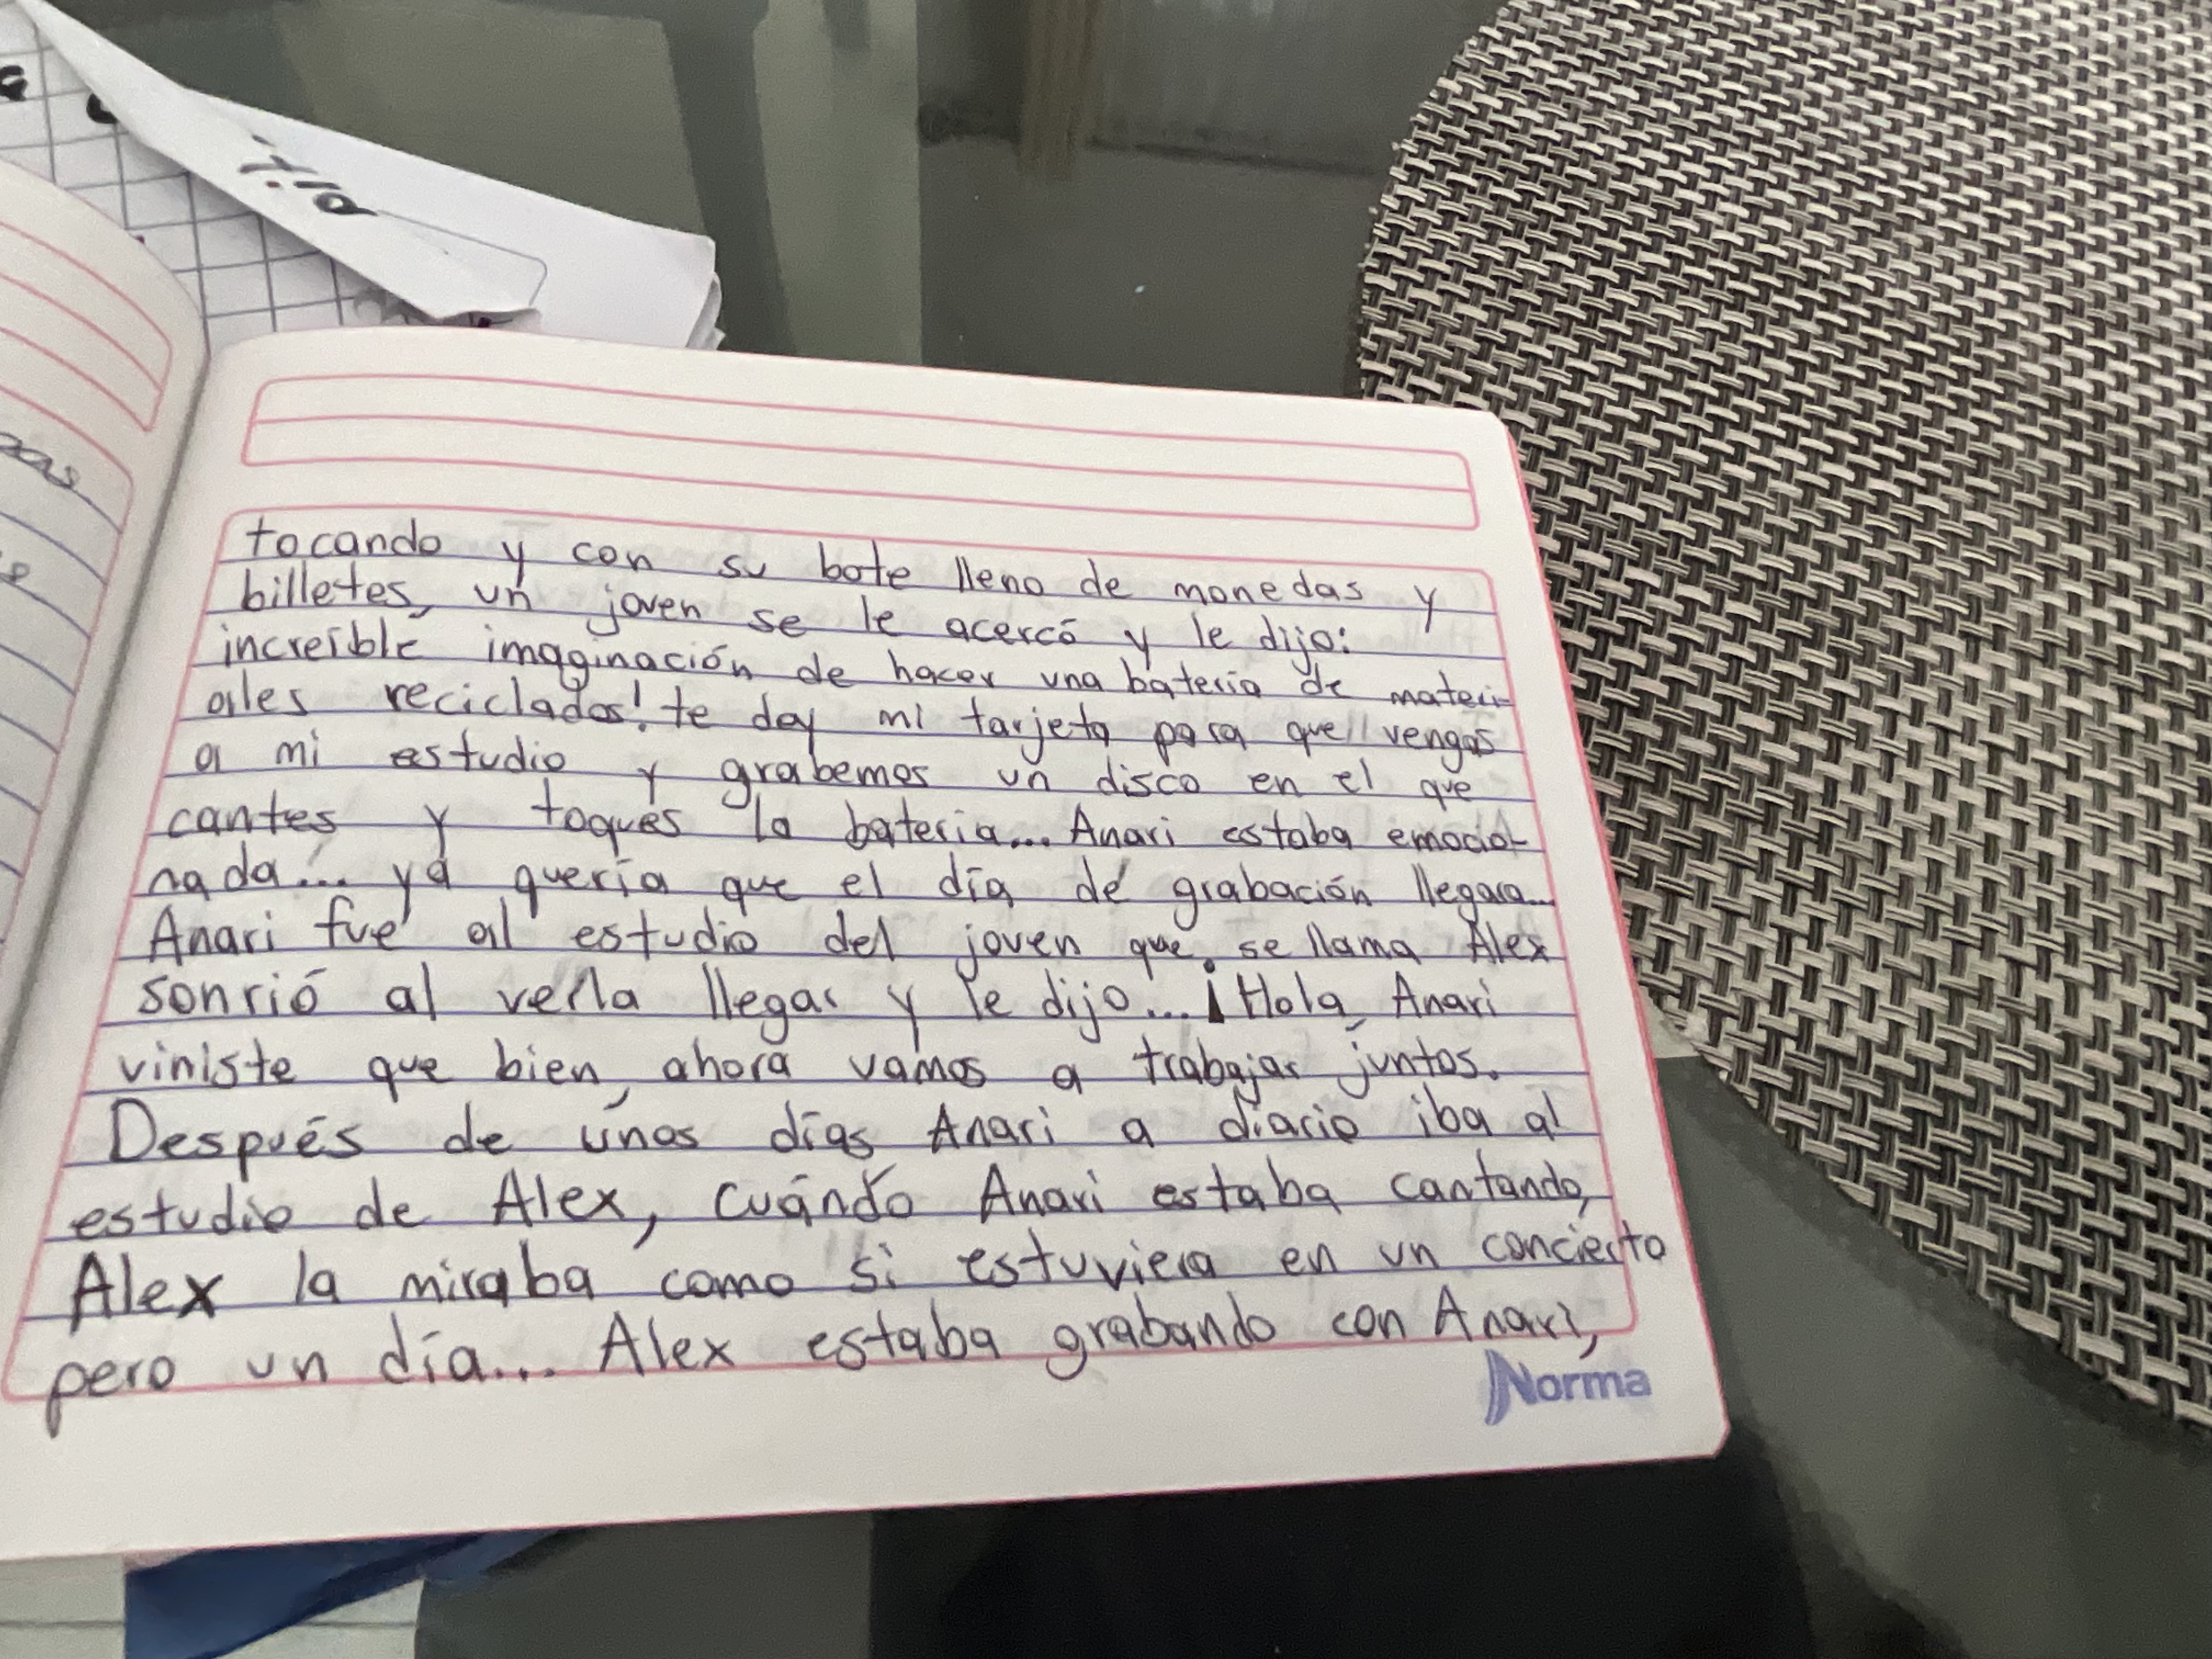 tocando y con su bote lleno de monedas y
billetes, un joven se le acercó y le dijo:
increíble imaginación de hacer una batería de materi-
ales reciclados! te doy mi tarjeta para que vengas
a mi estudio y grabemos un disco en el que
cantes y toques la bateria... Anari estaba emocio-
nada... ya quería que el día de grabación llegara...
Anari fue al estudio del joven que se llama Alex
sonrió al verla llegar y le dijo... ¡Hola Anari
viniste que bien, ahora vamos a trabajar juntos.
Después de unos días Anari a diario iba al
estudio de Alex, cuándo Anari estaba cantando,
Alex la miraba como si estuviera en un concierto
pero un día... Alex estaba grabando con Anari,
Norma